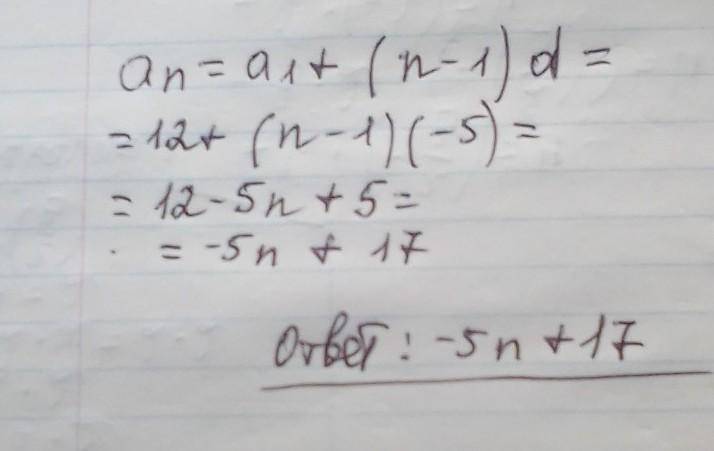 an = a1 + (n-1) d =
= 12 + (n-1)(-5) =
= 12 - 5n + 5 =
= -5n + 17
Ответ: -5n + 17